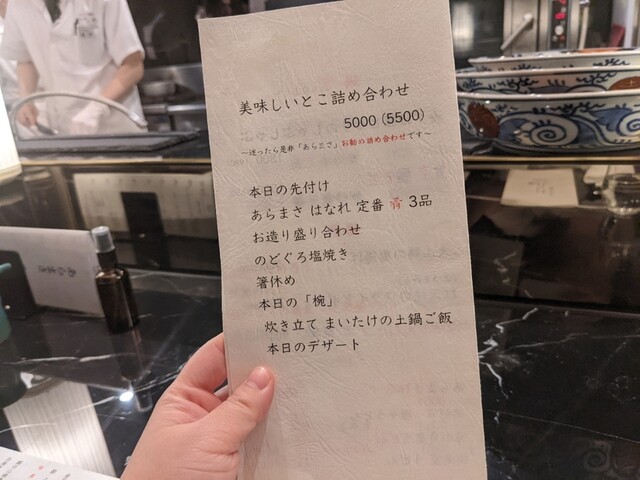 美味しいとこ詰め合わせ
5000（5500）
～迷ったら是非「あら三さ」お勧め詰め合わせです～
本日の先付け
あらまさ はなれ 定番 肴 3品
お造り盛り合わせ
のどぐろ塩焼き
箸休め
本日の「椀」
炊き立て まいたけの土鍋ご飯
本日のデザート